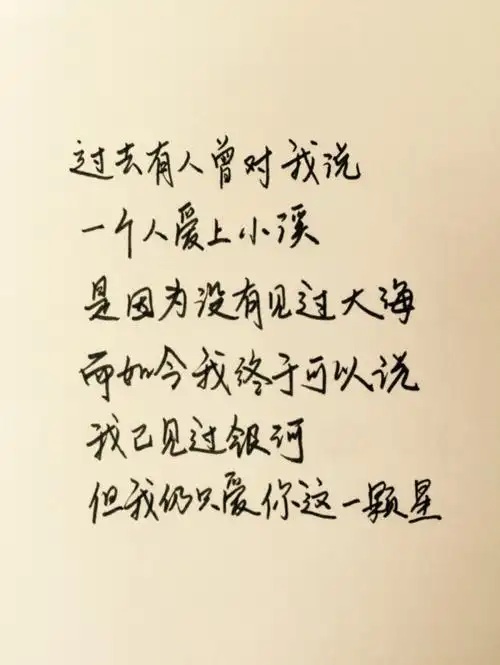 过去有人曾对我说
一个人爱上小溪
是因为没有见过大海
而如今我终于可以说
我已见过银河
但我仍只爱你这一颗星